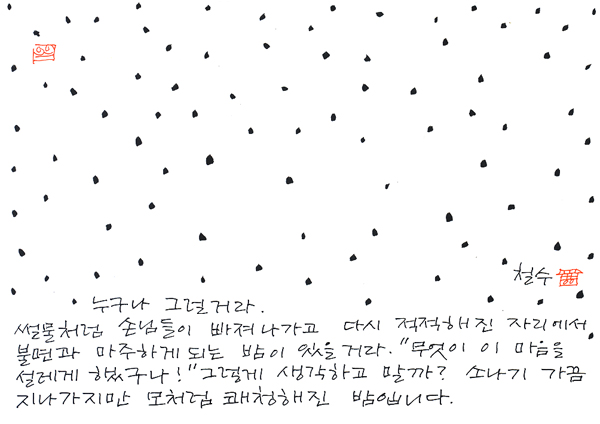 철수
누구나 그럴거라.
썰물처럼 손님들이 빠져나가고 다시 적적해진 자리에서
불면과 마주하게 되는 밤이 있을거라. "무엇이 이 마음을
설레게 했구나!" 그렇게 생각하고 말까? 소나기 가끔
지나가지만 모처럼 쾌청해진 밤입니다.